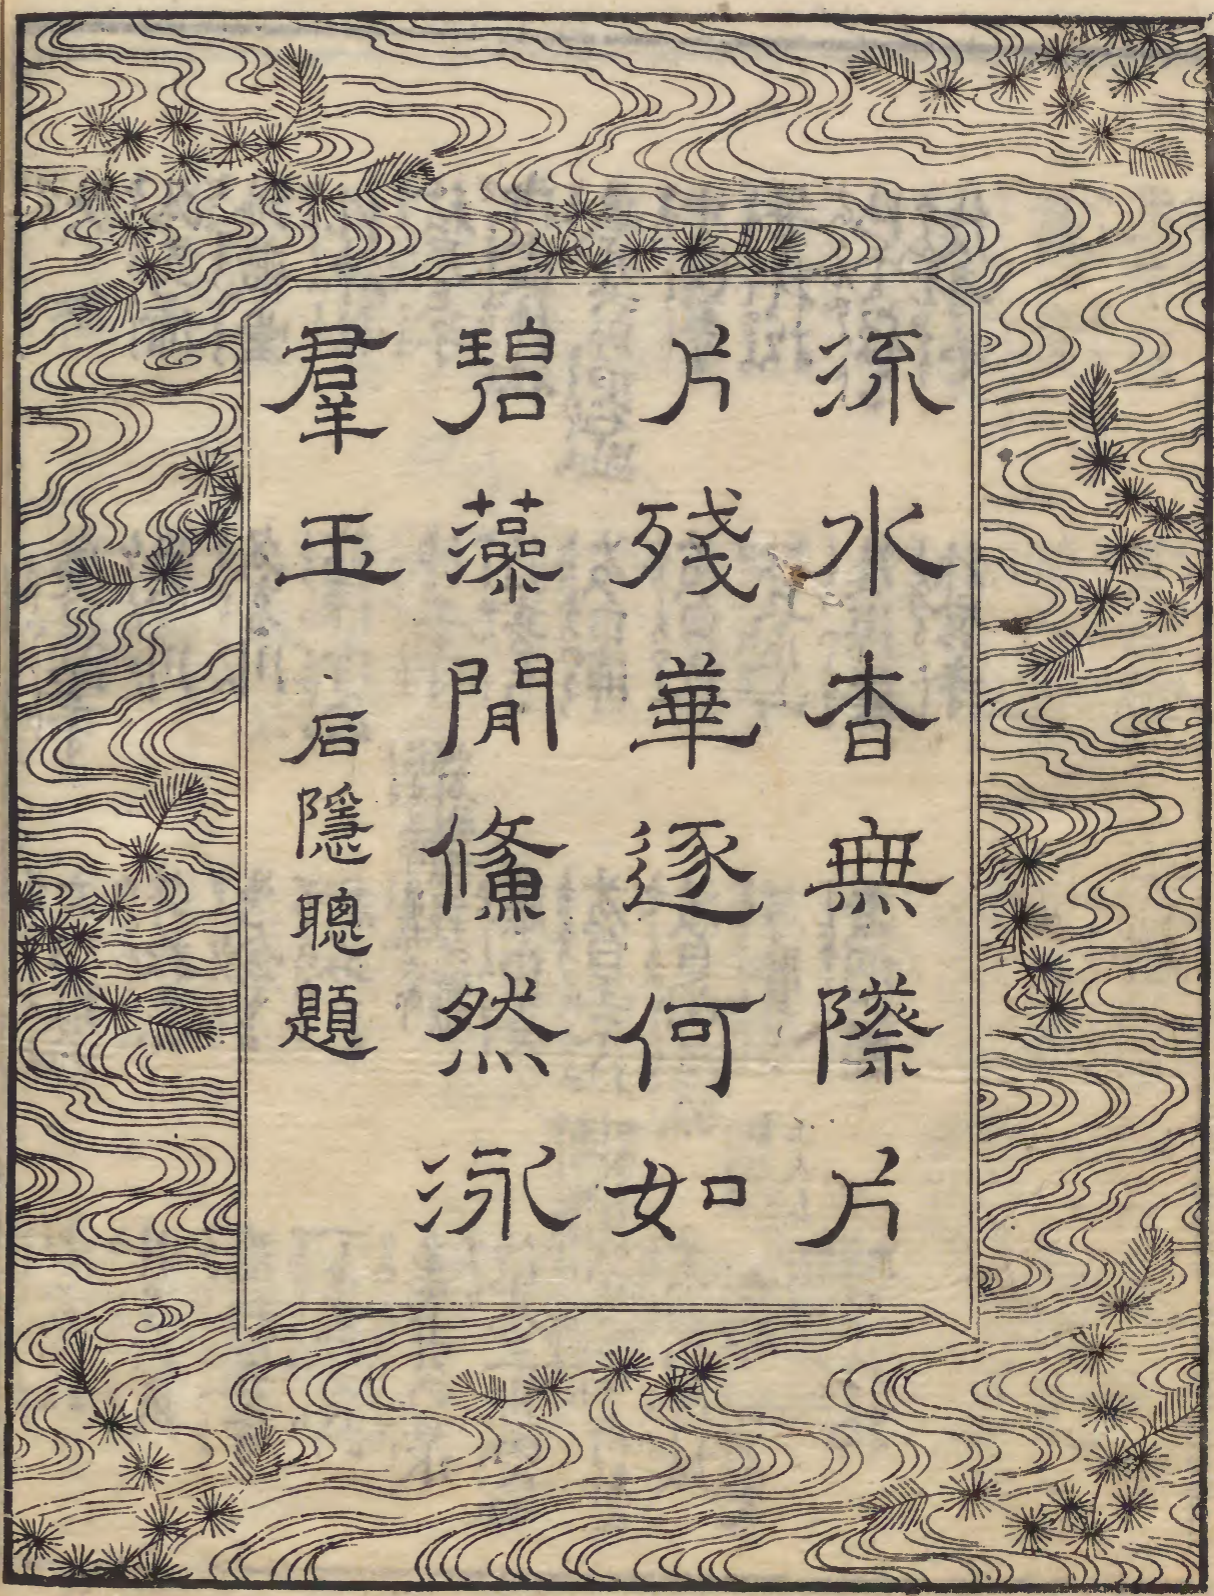 流水杳無際片
片殘華逐何如
碧藻閒鯈然泳
羣玉 石隱聰題